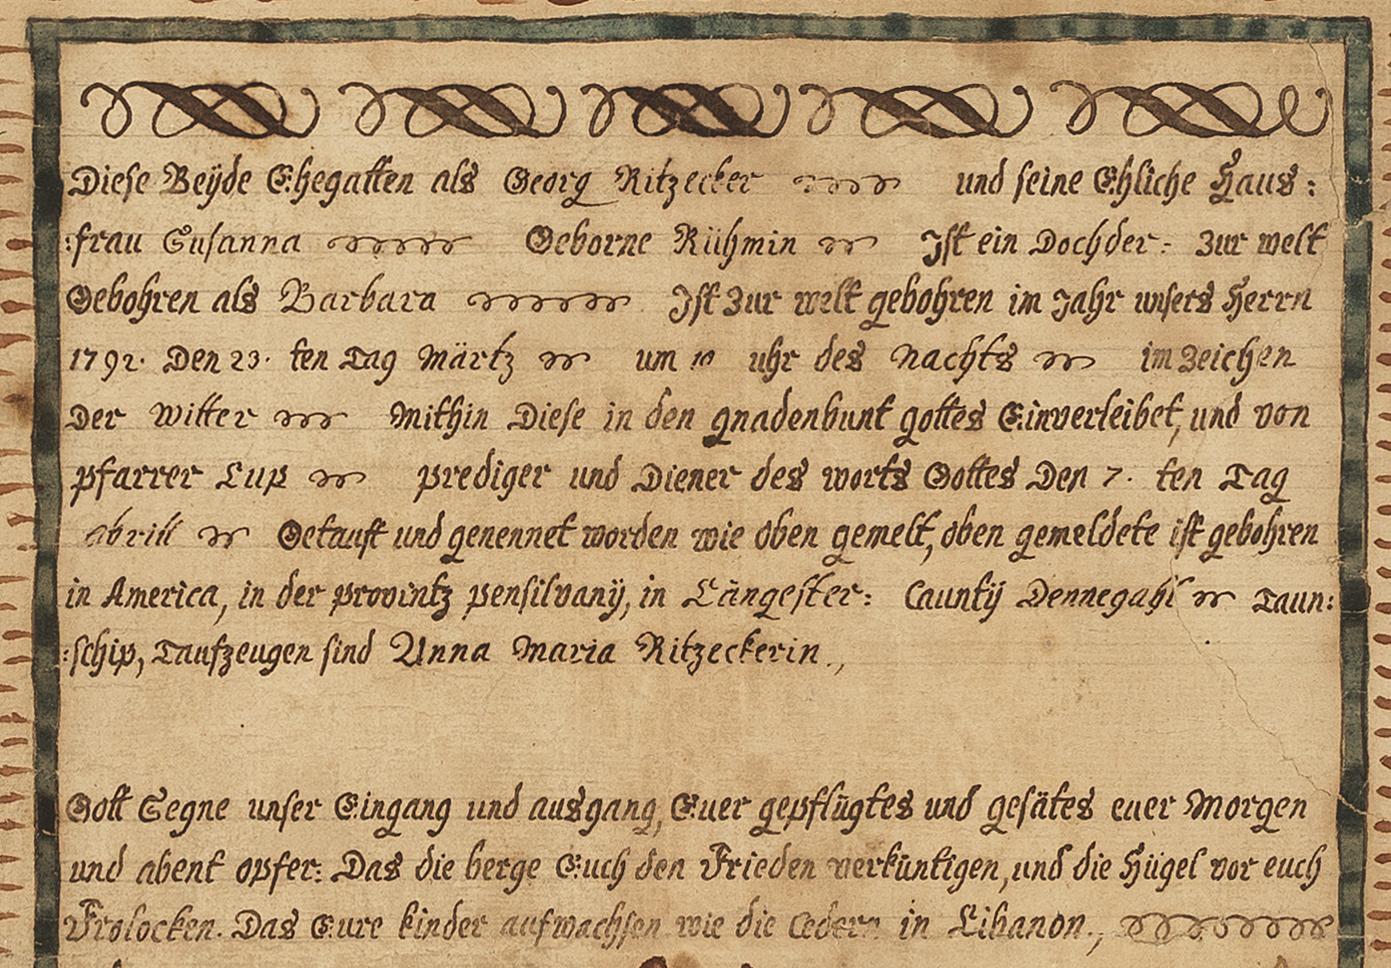 Diese Beÿde Ehegatten als Georg Ritzecker und seine Ehliche Haus:
:frau Susanna Geborne Rühmin Ist ein Dochder: Zur welt
Gebohren als Barbara Ist Zur welt gebohren im Jahr unsers Herrn
1792. Den 23. ten Tag Märtz um 10 uhr des Nachts im Zeichen
Der Witter Mithin Diese in den gnadenbunt gottes Einverleibet, und von
pfarrer Lup prediger und Diener des worts Gottes Den 7. ten Tag
abrill Getauft und genennet worden wie oben gemelt, oben gemeldete ist gebohren
in America, in der provintz pensilvanÿ, in Längester: Cauntÿ Dennegahl Taun:
:schip, Taufzeugen sind Anna Maria Ritzeckerin.,
Gott Segne unser Eingang und ausgang, Euer gepflügtes und gesätes euer Morgen
und abent opfer: Das die berge Euch den Frieden verküntigen, und die Hügel vor euch
Frolocken. Das Eure kinder aufwachsen wie die Cedern in Libanon.,